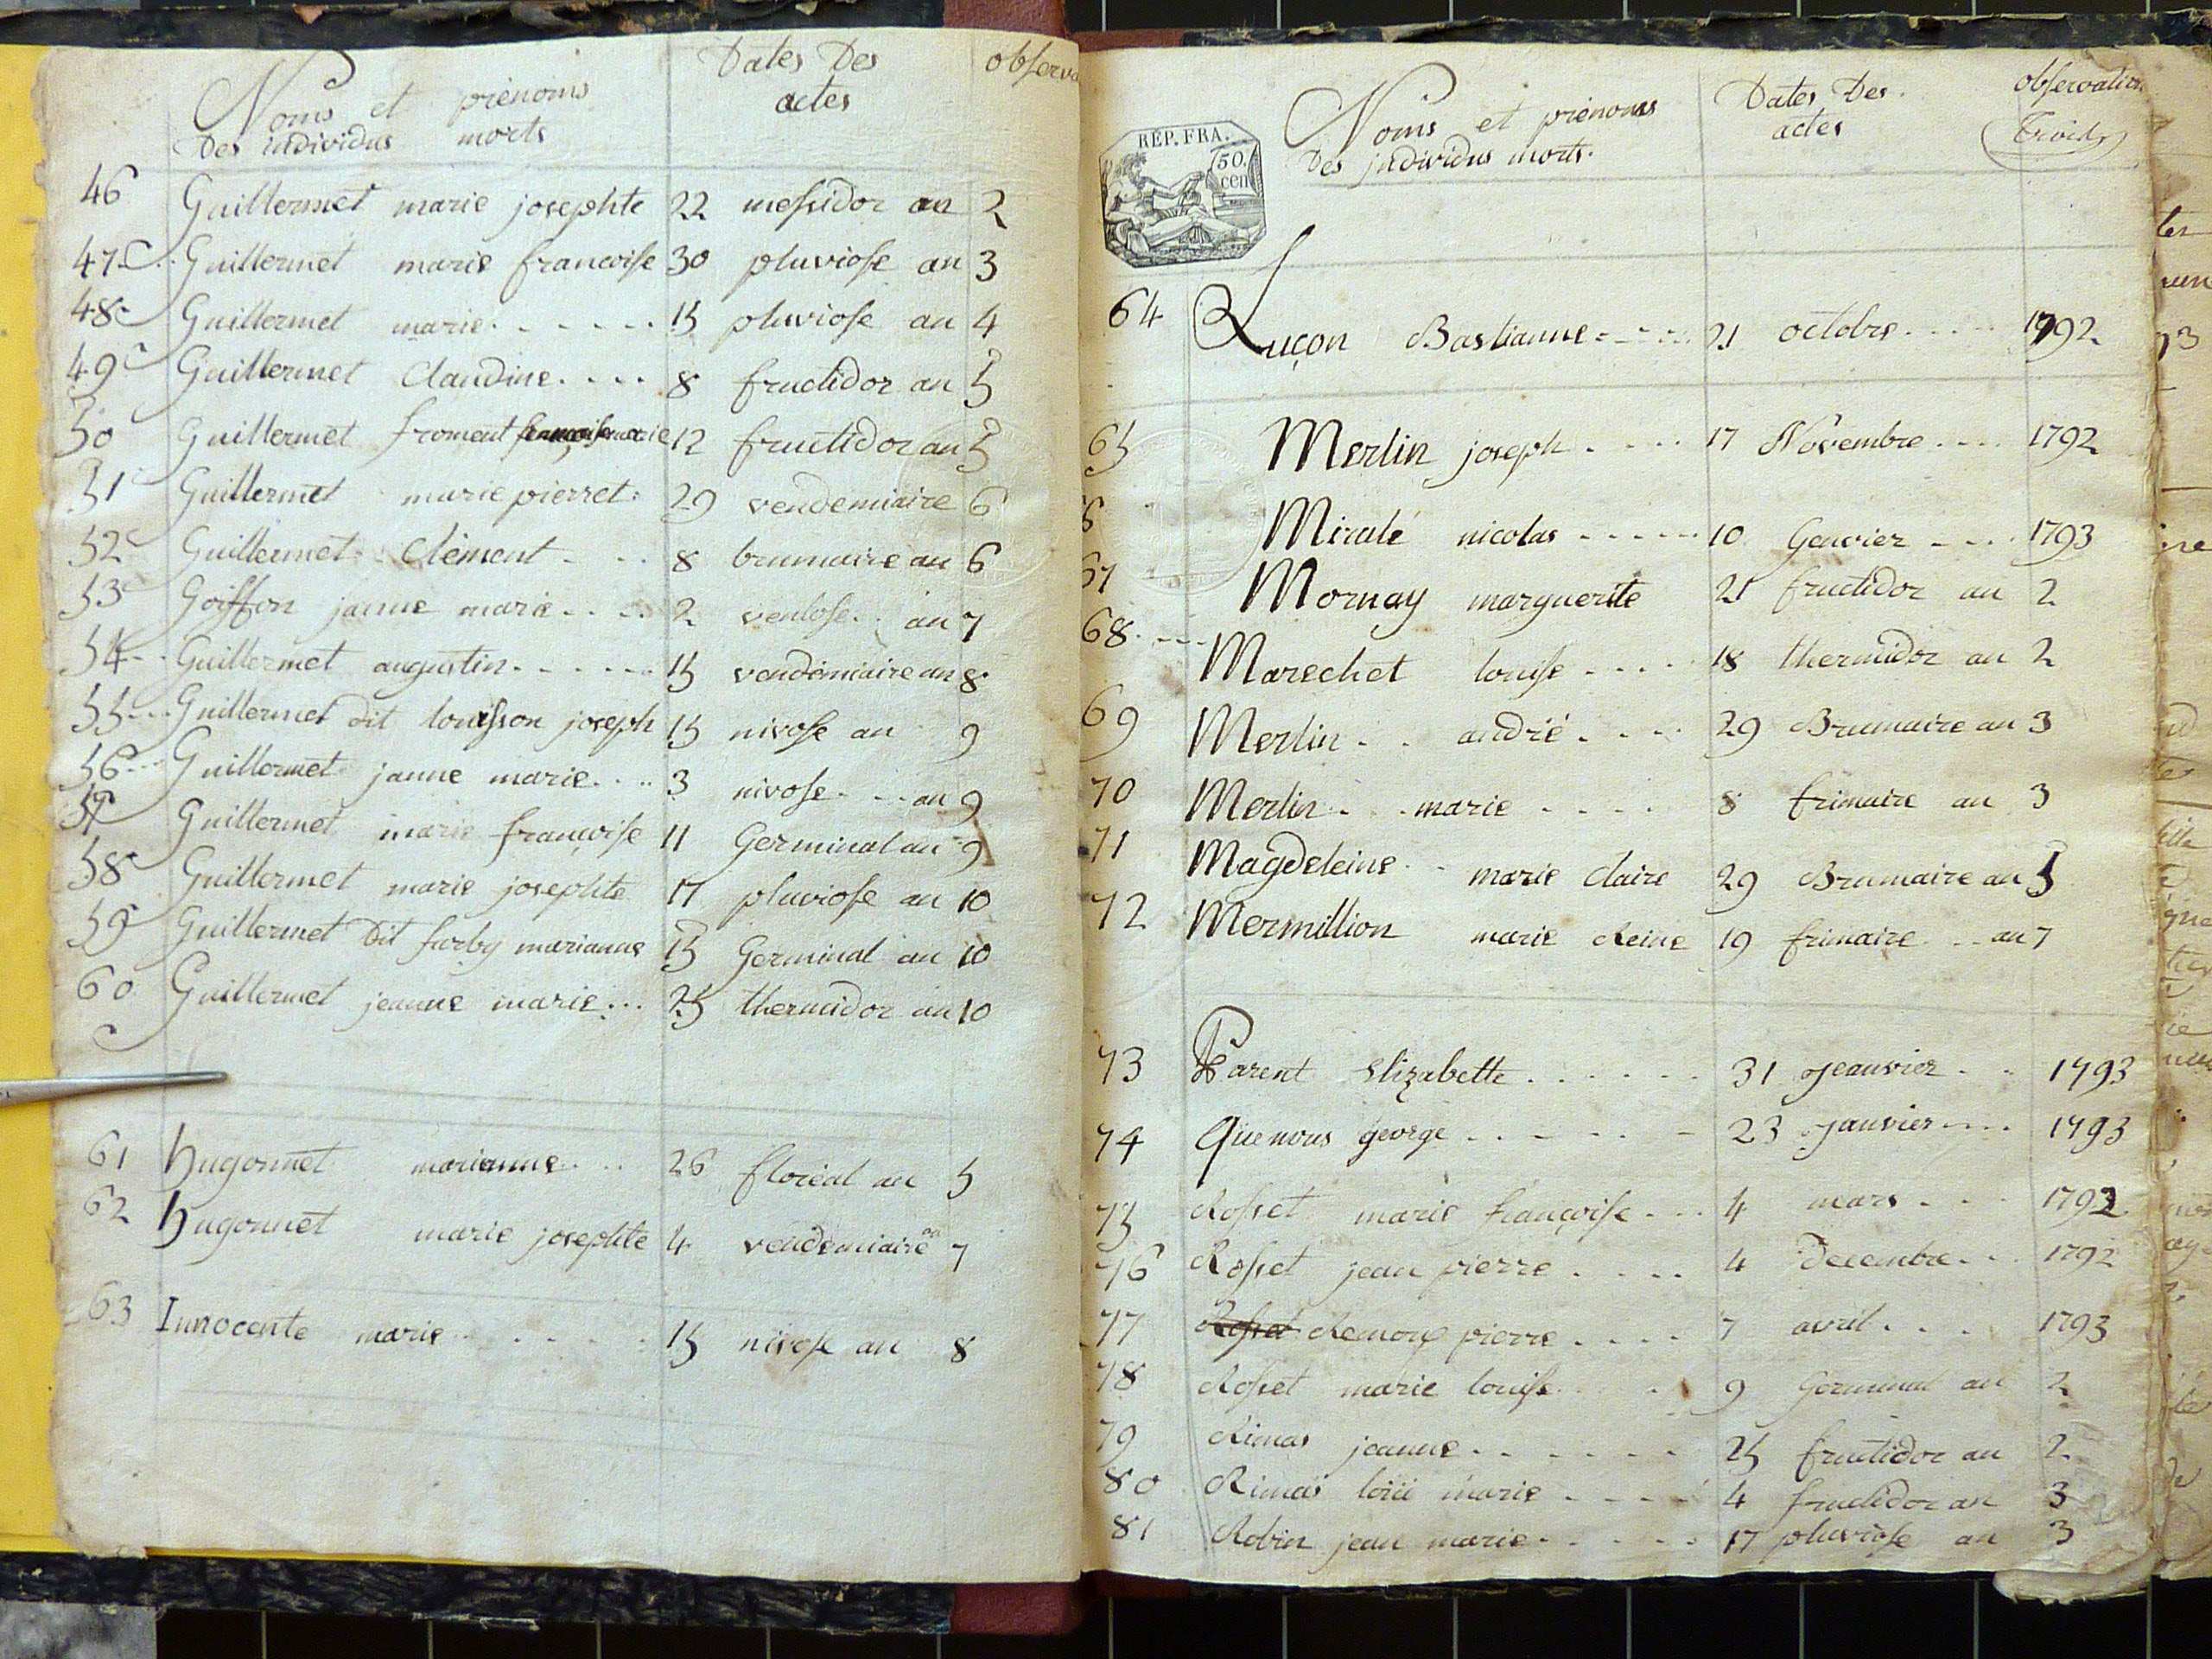 Noms et prénoms
Des individus morts
Dates Des
actes
observa
46 Guillermet marie josephte 22 messidor an 2
47 Guillermet marie francoise 30 pluviose an 3
48 Guillermet marie 15 pluviose an 4
49 Guillermet Claudine 8 fructidor an 5
50 Guillermet froment 12 fructidor an 5
51 Guillermet marie pierret 29 vendemiaire 6
52 Guillermet Clément 8 brumaire an 6
53 Goiffon janne marie 2 ventose an 7
54 Guillermet augustin 15 vendémiaire an 8
55 Guillermet dit louisson joseph 15 nivose an 9
56 Guillermet janne marie 3 nivose an 9
57 Guillermet marie françoise 11 Germinal an 9
58 Guillermet marie josephte 17 pluviose an 10
59 Guillermet Dit furby marianne 15 Germinal an 10
60 Guillermet jeanne marie 25 thermidor an 10
61 hugonnet marianne 26 floréal an 5
62 hugonnet marie josephte 4 vendémiaire an 7
63 Innocente marie 15 nivose an 8
REP. FRA.
50.
cen
Noms et prénoms
Des individus morts.
Dates Des
actes
observation
Trois
64 Luçon Bastianne 21 octobre 1792
65 Merlin joseph 17 Novembre 1792
6 Miralé nicolas 10 Genvier 1793
67 Mornay marguerite 21 fructidor an 2
68 Marechet louise 18 thermidor an 2
69 Merlin andré 29 Brumaire an 3
70 Merlin marie 8 frimaire an 3
71 Magdeleine marie Claire 29 Brumaire an 5
72 Mermillion marie Reine 19 frimaire an 7
73 Parent Elizabette 31 jeanvier 1793
74 Quenous george 23 janvier 1793
75 Rosset marie françoise 4 mars 1792
76 Rosset jean pierre 4 Decembre 1792
77 Rosset Remory pierre 7 avril 1793
78 Rosset marie louise 9 Germinal an 2
79 Rimas jeanne 25 fructidor an 2
80 Rimas marie 4 fructidor an 3
81 Robin jean marie 17 pluviose an 3